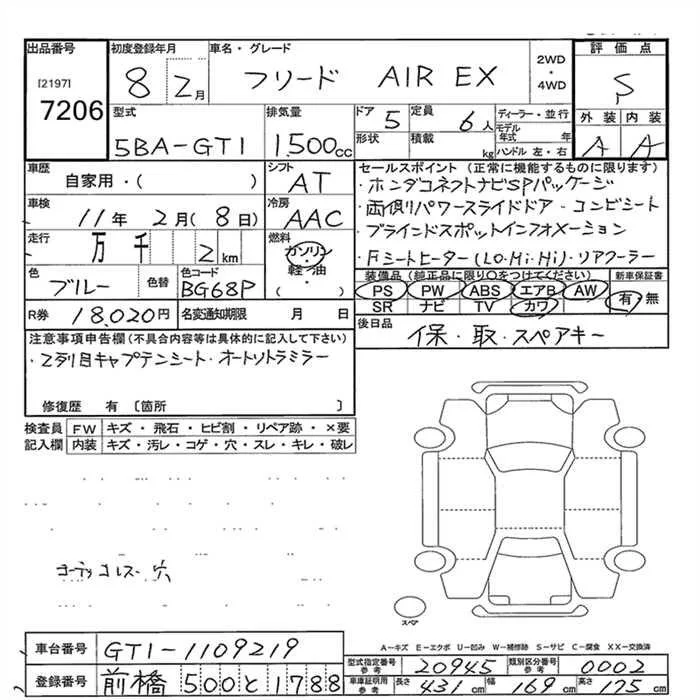 出品番号 初度登録年月 車名・グレード 2WD・4WD 評価点
[2197]
7206
8 2月 フリード AIR EX S
型式 排気量 ドア 5 定員 6人 ディーラー・並行 外装 内装
5BA-GT1 1,500cc 形状 積載 kg モデル年式 年 ハンドル 左・右 A A
車歴 シフト セールスポイント(正常に機能するものに限ります)
自家用・( ) AT ・ホンダコネクトナビSPパッケージ
車検 11年 2月(8日) 冷房 AAC ・両側パワースライドドア・コンビシート
走行 万 千 2km 燃料 ガソリン・軽油・( ) ・ブラインドスポットインフォメーション
・Fシートヒーター(LO・Mi・Hi)・リアクーラー
色 ブルー 色替 色コード BG68P 装備品(純正品に限り○をつけてください) 新車保証書
PS PW ABS エアB AW 有・無
SR ナビ TV カワ
R券 18,020円 名変通知期限 月 日 後日品 保・取・スペアキー
注意事項申告欄(不具合内容等は具体的に記入して下さい)
・2列目キャプテンシート・オートリトラミラー
修復歴 有 〔箇所 〕
検査員 FW キズ・飛石・ヒビ割・リペア跡・×要
記入欄 内装 キズ・汚レ・コゲ・穴・スレ・キレ・破レ
スペア
A-キズ E-エクボ U-凹み W-補修跡 S-サビ C-腐食 XX-交換済
車台番号 GT1-1109219
型式指定番号 参考 20945 類別区分番号 参考 0002
登録番号 前橋 500 と 1788 車庫証明用 参考 長さ 431cm 幅 169cm 高さ 175cm